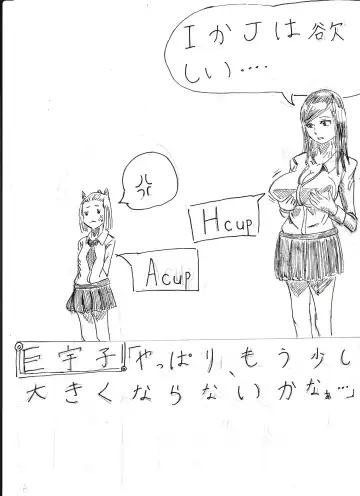 IかJは欲
しい‥‥
Hcup
Acup
巨宇子「やっぱり、もう少し
大きくならないかなぁ…」